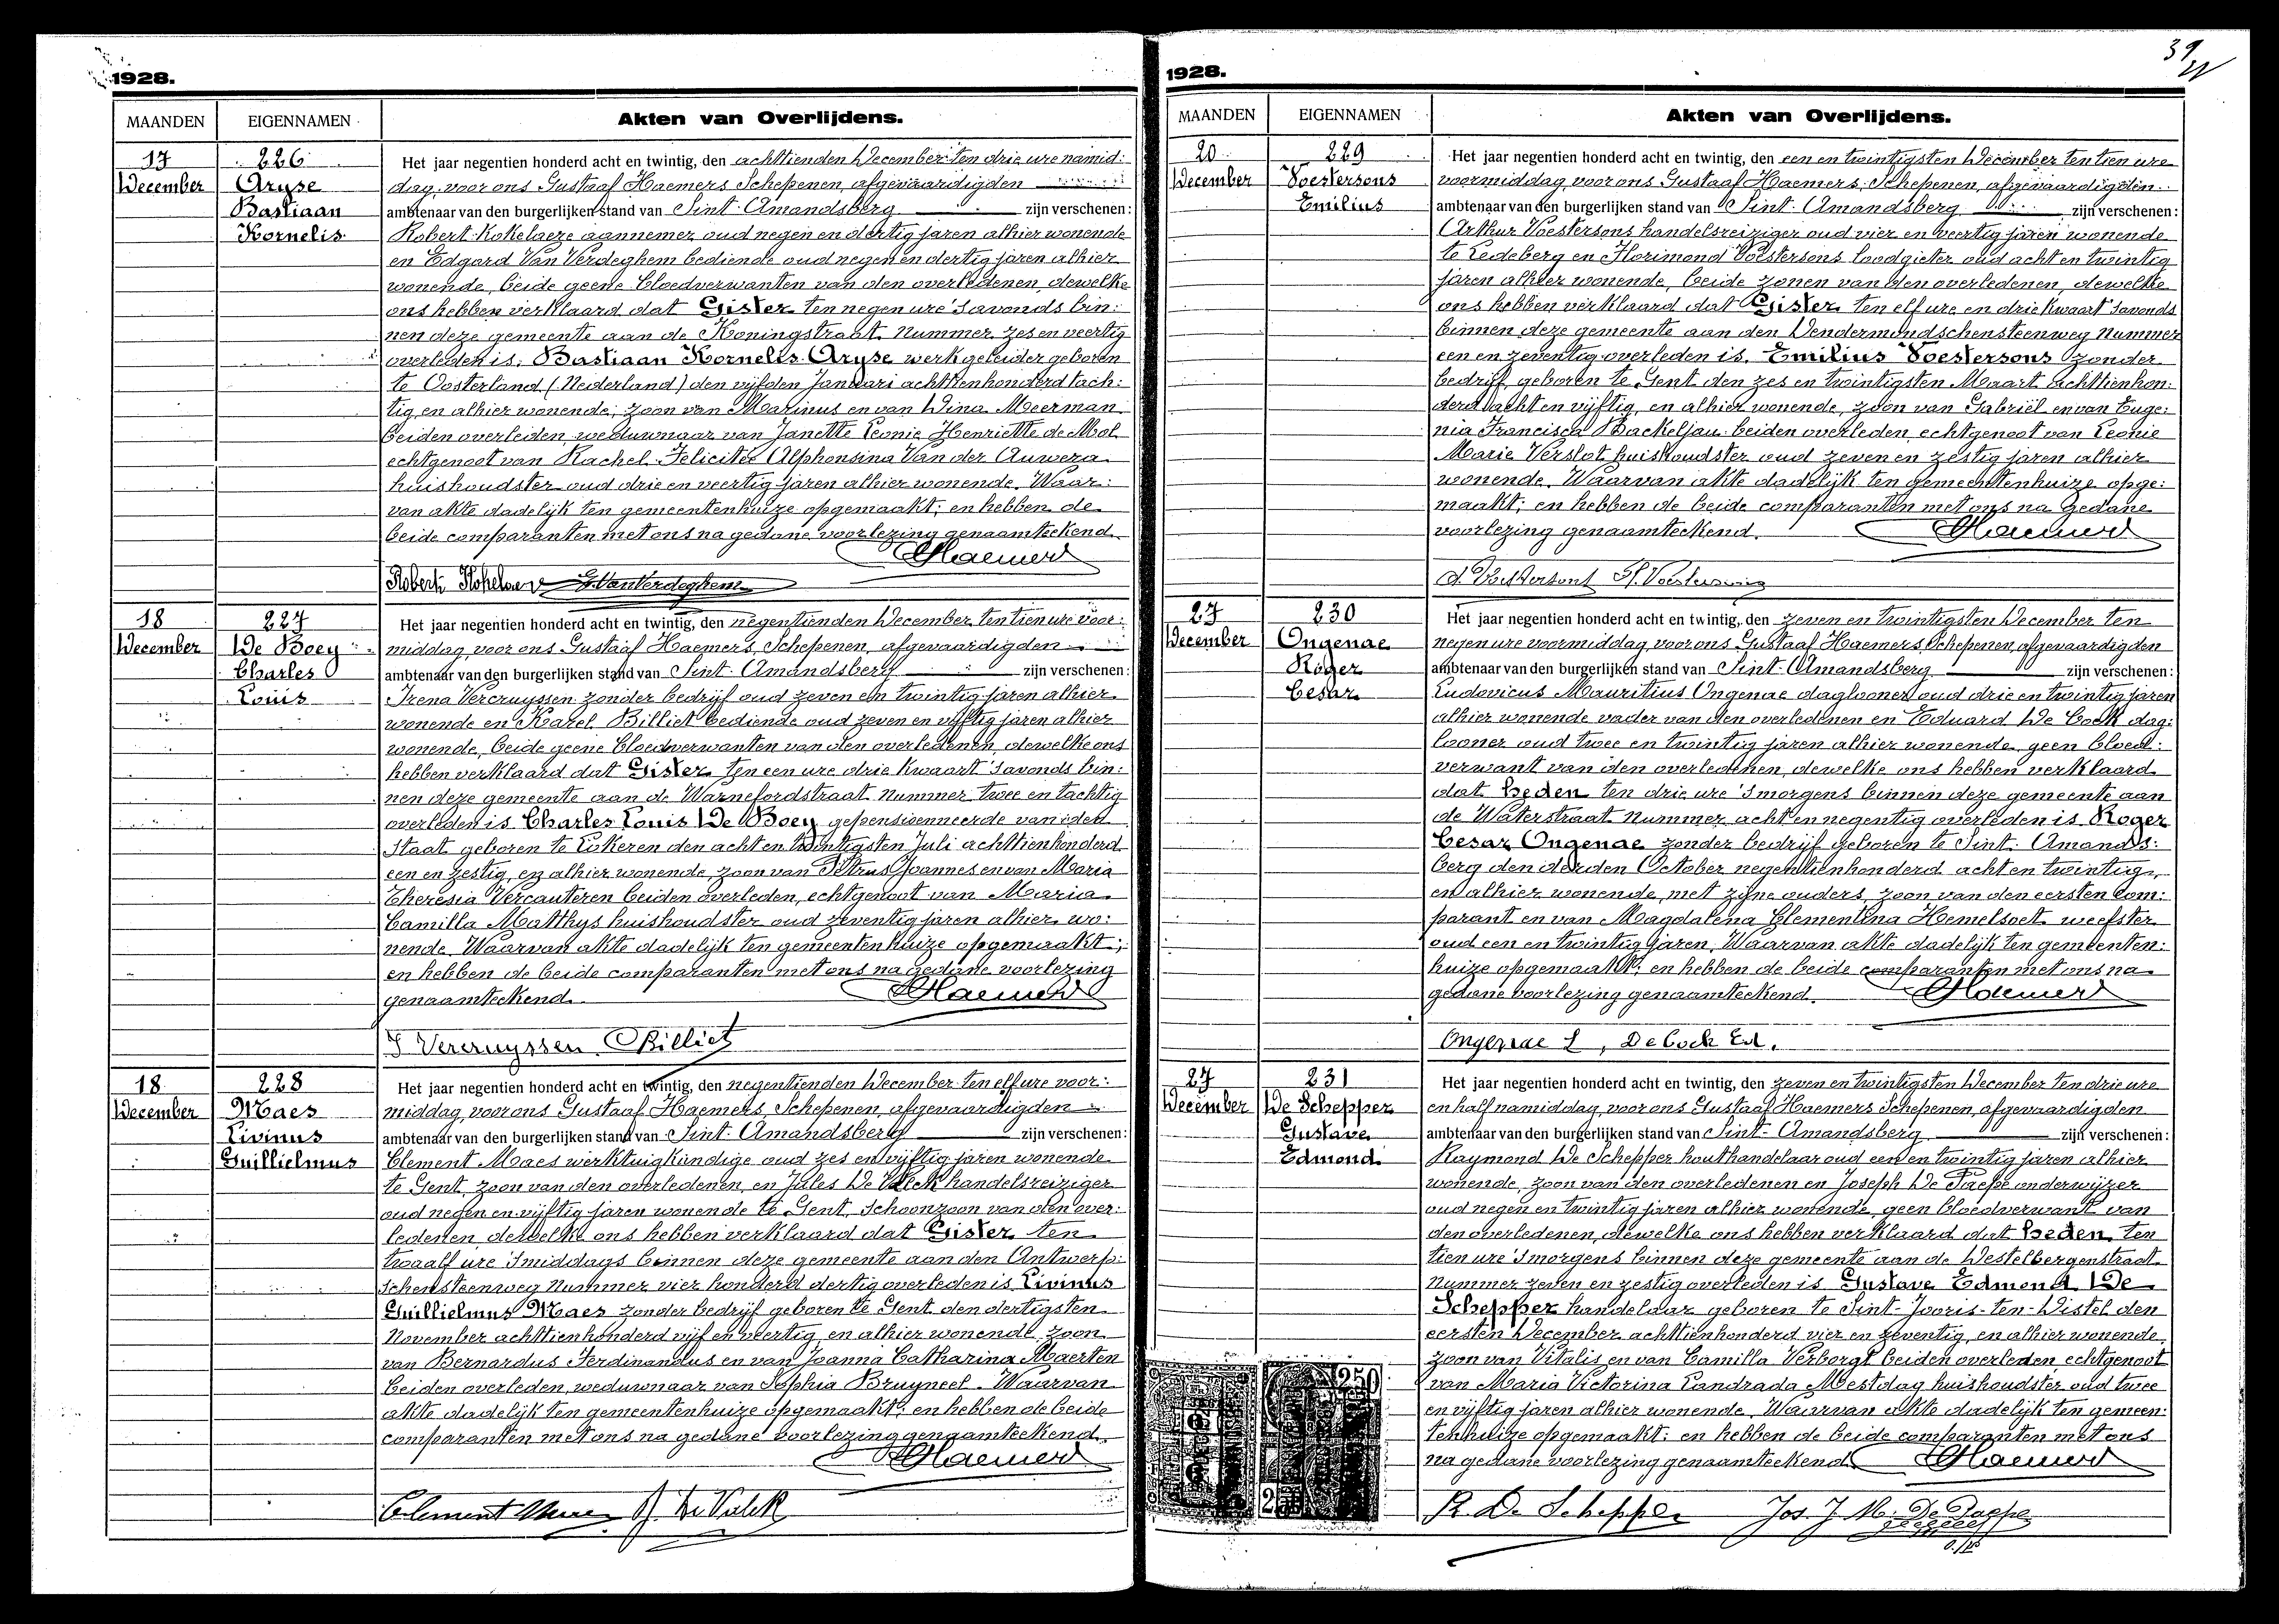 1928.
MAANDEN EIGENNAMEN Akten van Overlijdens.
17 226 Het jaar negentien honderd acht en twintig, den achttienden December ten drie ure namid:
December Aryse dag, voor ons Gustaaf Haemers Schepenen, afgevaardigden
Bastiaan ambtenaar van den burgerlijken stand van Sint-Amandsberg zijn verschenen:
Kornelis Robert Kokelaere aannemer oud negen en dertig jaren alhier wonende
en Edgard Van Verdeghem bediende oud negen en dertig jaren alhier
wonende, beide geene bloedverwanten van den overledenen, dewelke
ons hebben verklaard dat Gister ten negen ure 's avonds bin:
nen deze gemeente aan de Koningstraat Nummer zes en veertig
overleden is, Bastiaan Kornelis Aryse werkgeleider geboren
te Oosterland (Nederland) den vijfden Januari achttienhonderd tach:
tig en alhier wonende, zoon van Marinus en van Dina Meerman
beiden overleiden, weduwnaar van Janette Leonie Henriette de Mol
echtgenoot van Rachel Felicitee Alphonsina Van der Auwera
huishoudster oud drie en veertig jaren alhier wonende. Waar:
van akte dadelijk ten gemeentenhuize opgemaakt; en hebben de
beide comparanten met ons na gedane voorlezing genaamteekend.
GHaemers
Robert Kokelaere E. VanVerdeghem
18 227 Het jaar negentien honderd acht en twintig, den negentienden December ten tien ure voor:
December De Boey middag, voor ons Gustaaf Haemers, Schepenen, afgevaardigden
Charles ambtenaar van den burgerlijken stand van Sint-Amandsberg zijn verschenen:
Louis Irena Vercruyssen zonder bedrijf oud zeven en twintig jaren alhier
wonende en Karel Billiet bediende oud zeven en vijftig jaren alhier
wonende, beide geene bloedverwanten van den overledenen, dewelke ons
hebben verklaard dat Gister ten een ure drie kwaart 's avonds bin:
nen deze gemeente aan de Warnefordstraat Nummer twee en tachtig
overleden is Charles Louis De Boey gepensioenneerde van den
Staat geboren te Lokeren den acht en twintigsten Juli achttienhonderd
een en zestig, en alhier wonende, zoon van Petrus Joannes en van Maria
Theresia Vercauteren beiden overleden, echtgenoot van Maria
Camilla Matthys huishoudster oud zeventig jaren alhier wo:
nende. Waarvan akte dadelijk ten gemeentenhuize opgemaakt;
en hebben de beide comparanten met ons na gedane voorlezing
genaamteekend. GHaemers
I Vercruyssen CBilliet
18 228 Het jaar negentien honderd acht en twintig, den negentienden December ten elf ure voor:
December Maes middag, voor ons Gustaaf Haemers, Schepenen, afgevaardigden
Livinus ambtenaar van den burgerlijken stand van Sint-Amandsberg zijn verschenen:
Guillielmus Clement Maes werktuigkundige oud zes en vijftig jaren wonende
te Gent, zoon van den overledenen, en Jules De Valck handelsreiziger
oud negen en vijftig jaren wonende te Gent, Schoonzoon van den over:
ledenen dewelke ons hebben verklaard dat Gister ten
twaalf ure 's middags binnen deze gemeente aan den Antwerp:
schensteenweg Nummer vier honderd dertig overleden is Livinus
Guillielmus Maes zonder bedrijf geboren te Gent den dertigsten
November achttienhonderd vijf en veertig en alhier wonende, zoon
van Bernardus Ferdinandus en van Joanna Catharina Maerten
beiden overleden, weduwnaar van Sophia Bruyneel. Waarvan
akte dadelijk ten gemeentenhuize opgemaakt; en hebben de beide
comparanten met ons na gedane voorlezing genaamteekend.
GHaemers
Clement Maes J. De Valck
39
1928.
MAANDEN EIGENNAMEN Akten van Overlijdens.
20 229 Het jaar negentien honderd acht en twintig, den een en twintigsten December ten tien ure
December Voestersons voormiddag, voor ons Gustaaf Haemers, Schepenen, afgevaardigden
Emilius ambtenaar van den burgerlijken stand van Sint-Amandsberg zijn verschenen:
Arthur Voestersons handelsreiziger oud vier en veertig jaren wonende
te Ledeberg en Florimond Voestersons loodgieter oud acht en twintig
jaren alhier wonende, beide zonen van den overledenen, dewelke
ons hebben verklaard dat Gister ten elf ure en drie kwaart 's avonds
binnen deze gemeente aan den Dendermondschensteenweg Nummer
een en zeventig overleden is, Emilius Voestersons zonder
bedrijf, geboren te Gent den zes en twintigsten Maart achttienhon:
derd acht en vijftig, en alhier wonende, zoon van Gabriël en van Euge:
nia Francisca Backeljau beiden overleden, echtgenoot van Leonie
Marie Verslot huishoudster oud zeven en zestig jaren alhier
wonende. Waarvan akte dadelijk ten gemeentenhuize opge:
maakt; en hebben de beide comparanten met ons na gedane
voorlezing genaamteekend. GHaemers
A. Voestersons F. Voestersons
27 230 Het jaar negentien honderd acht en twintig, den zeven en twintigsten December ten
December Ongenae negen ure voormiddag, voor ons Gustaaf Haemers, Schepenen, afgevaardigden
Roger ambtenaar van den burgerlijken stand van Sint-Amandsberg zijn verschenen:
Cesar Ludovicus Mauritius Ongenae daglooner oud drie en twintig jaren
alhier wonende vader van den overledenen en Eduard De Cock dag:
looner oud twee en twintig jaren alhier wonende, geen bloed:
verwant van den overledenen, dewelke ons hebben verklaard
dat heden ten drie ure 's morgens binnen deze gemeente aan
de Waterstraat Nummer acht en negentig overleden is Roger
Cesar Ongenae zonder bedrijf geboren te Sint-Amands:
berg den derden October negentienhonderd acht en twintig,
en alhier wonende, met zijne ouders, zoon van den eersten com:
parant en van Magdalena Clementina Hemelsoet weefster
oud een en twintig jaren. Waarvan akte dadelijk ten gemeenten:
huize opgemaakt; en hebben de beide comparanten met ons na
gedane voorlezing genaamteekend. GHaemers
Ongenae L, De Cock Ed.
27 231 Het jaar negentien honderd acht en twintig, den zeven en twintigsten December ten drie ure
December De Schepper en half namiddag, voor ons Gustaaf Haemers Schepenen, afgevaardigden
Gustave ambtenaar van den burgerlijken stand van Sint-Amandsberg zijn verschenen:
Edmond Raymond De Schepper houthandelaar oud een en twintig jaren alhier
wonende, zoon van den overledenen en Joseph De Paepe onderwijzer
oud negen en twintig jaren alhier wonende, geen bloedverwant van
den overledenen, dewelke ons hebben verklaard dat heden ten
tien ure 's morgens binnen deze gemeente aan de Destelbergenstraat
Nummer zeven en zestig overleden is Gustave Edmond De
Schepper handelaar geboren te Sint-Jooris-ten-Distel den
eersten December achttienhonderd vier en zeventig, en alhier wonende,
zoon van Vitalis en van Camilla Verborgt beiden overleden, echtgenoot
van Maria Victorina Landrada Mestdag huishoudster oud twee
en vijftig jaren alhier wonende. Waarvan akte dadelijk ten gemeen:
tenhuize opgemaakt; en hebben de beide comparanten met ons
na gedane voorlezing genaamteekend. GHaemers
R. De Schepper Jos. J. M. De Paepe